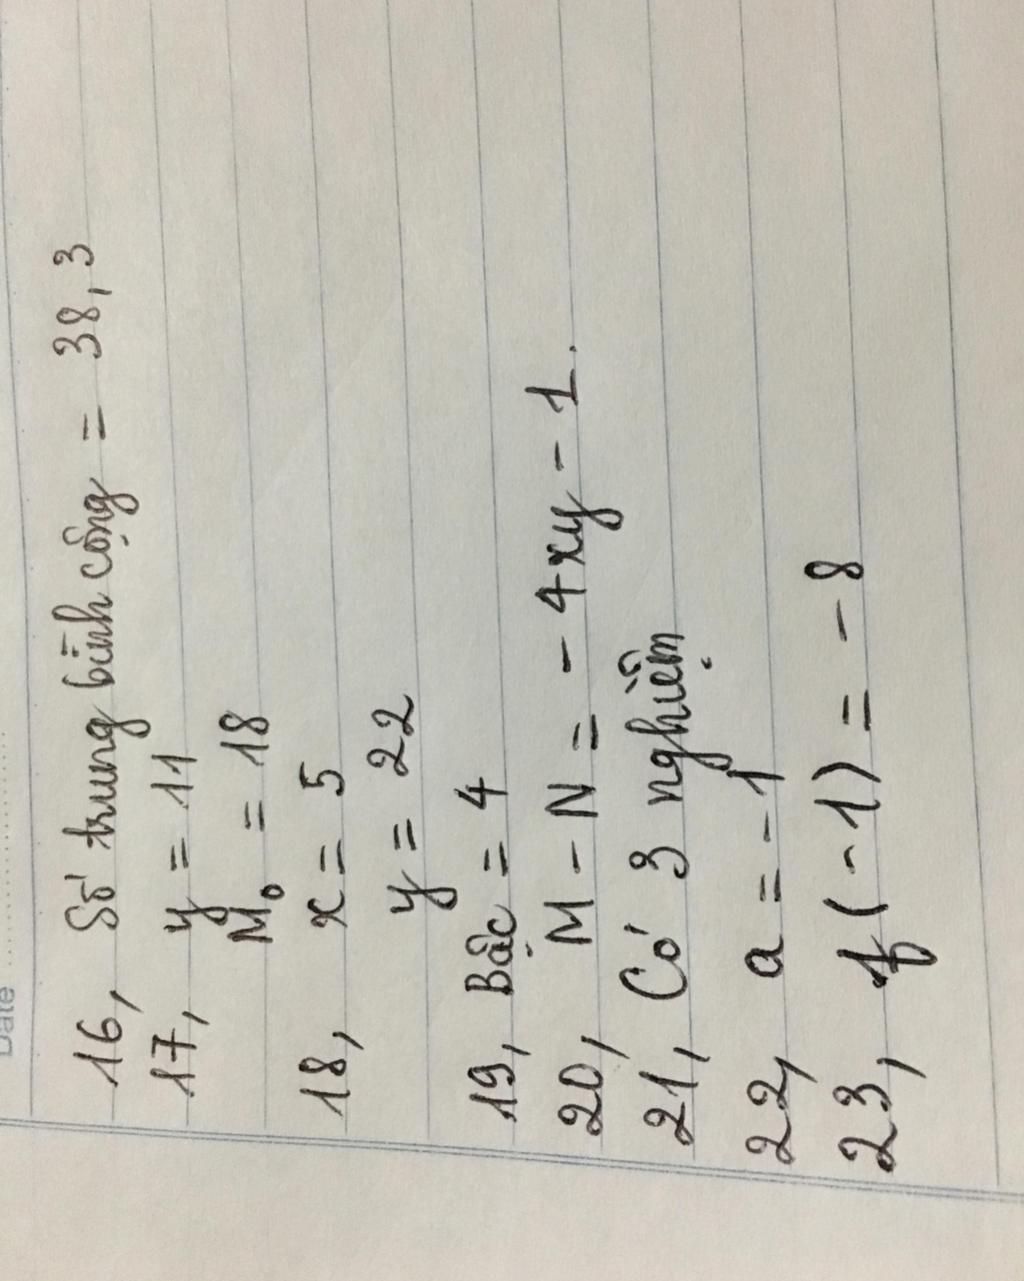 Date ............
16, Số trung bình cộng = 38,3
17, y = 11
M₀ = 18
18, x = 5
y = 22
19, Bậc = 4
20, M - N = - 4xy - 1.
21, Có 3 nghiệm
22, a = - 1
23, f(-1) = - 8